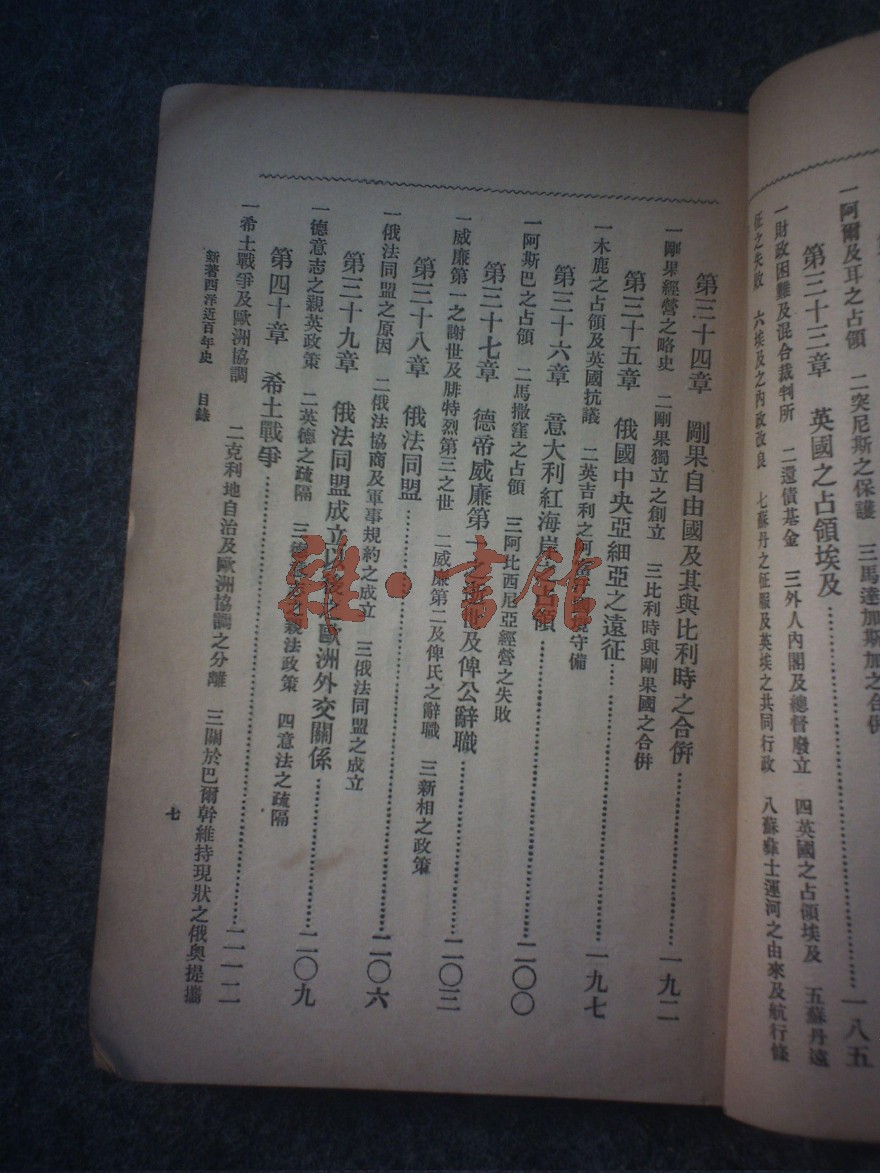 一阿爾及耳之占領　二突尼斯之保護　三馬達加斯加之合併
第三十三章　英國之占領埃及…………一八五
一財政困難及混合裁判所　二還債基金　三外人內閣及總督廢立　四英國之占領埃及　五蘇丹遠
征之失敗　六埃及之內政改良　七蘇丹之征服及英埃之共同行政　八蘇彝士運河之由來及航行條
第三十四章　剛果自由國及其與比利時之合併…………一九二
一剛果經營之略史　二剛果獨立之創立　三比利時與剛果國之合併
第三十五章　俄國中央亞細亞之遠征…………一九七
一木鹿之占領及英國抗議　二英吉利之阿富汗國境守備
第三十六章　意大利紅海岸之占領…………二〇〇
一阿斯巴之占領　二馬撒窪之占領　三阿比西尼亞經營之失敗
第三十七章　德帝威廉第一之逝世及俾公辭職…………二〇三
一威廉第一之謝世及腓特烈第三之世　二威廉第二及俾氏之辭職　三新相之政策
第三十八章　俄法同盟…………二〇六
一俄法同盟之原因　二俄法協商及軍事規約之成立　三俄法同盟之成立
第三十九章　俄法同盟成立以後之歐洲外交關係…………二〇九
一德意志之親英政策　二英德之疏隔　三之親法政策　四意法之疏隔
第四十章　希土戰爭…………二一二
一希土戰爭及歐洲協調　二克利地自治及歐洲協調之分離　三關於巴爾幹維持現狀之俄奧提攜
新著西洋近百年史　目錄
七
雜·書館